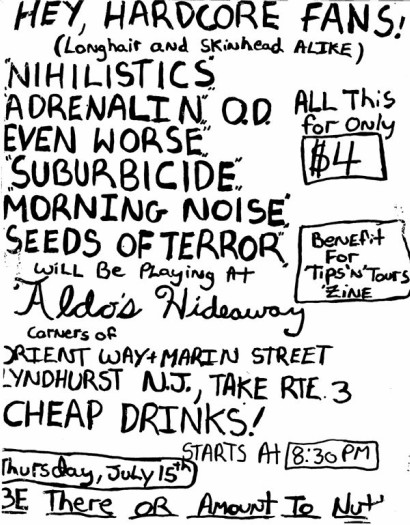 HEY, HARDCORE FANS!
(Longhair and Skinhead ALIKE)
"NIHILISTICS"
"ADRENALIN O.D.
EVEN WORSE"
"SUBURBICIDE"
MORNING NOISE"
"SEEDS OF TERROR"
ALL This
for Only
$4
Will Be Playing At
"Aldo's Hideaway
Corners of
ORIENT WAY + MARIN STREET
LYNDHURST N.J., TAKE RTE. 3
CHEAP DRINKS!
Benefit
For
"Tips 'N' Tours
'ZINE
STARTS At 8:30 PM
Thursday, July 15th
BE There OR Amount To Nut